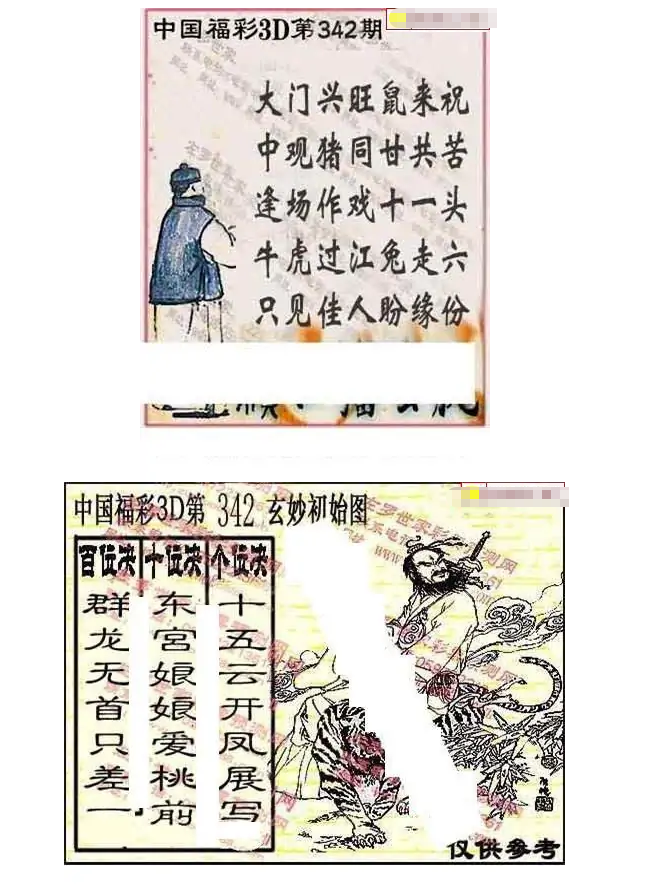 中国福彩3D第342期
大门兴旺鼠来祝
中观猪同甘共苦
逢场作戏十一头
牛虎过江兔走六
只见佳人盼缘份
中国福彩3D第 342 玄妙初始图
百位决 十位决 个位决
群龙无首只差一
东宫娘娘爱桃前
十五云开凤展写
仅供参考